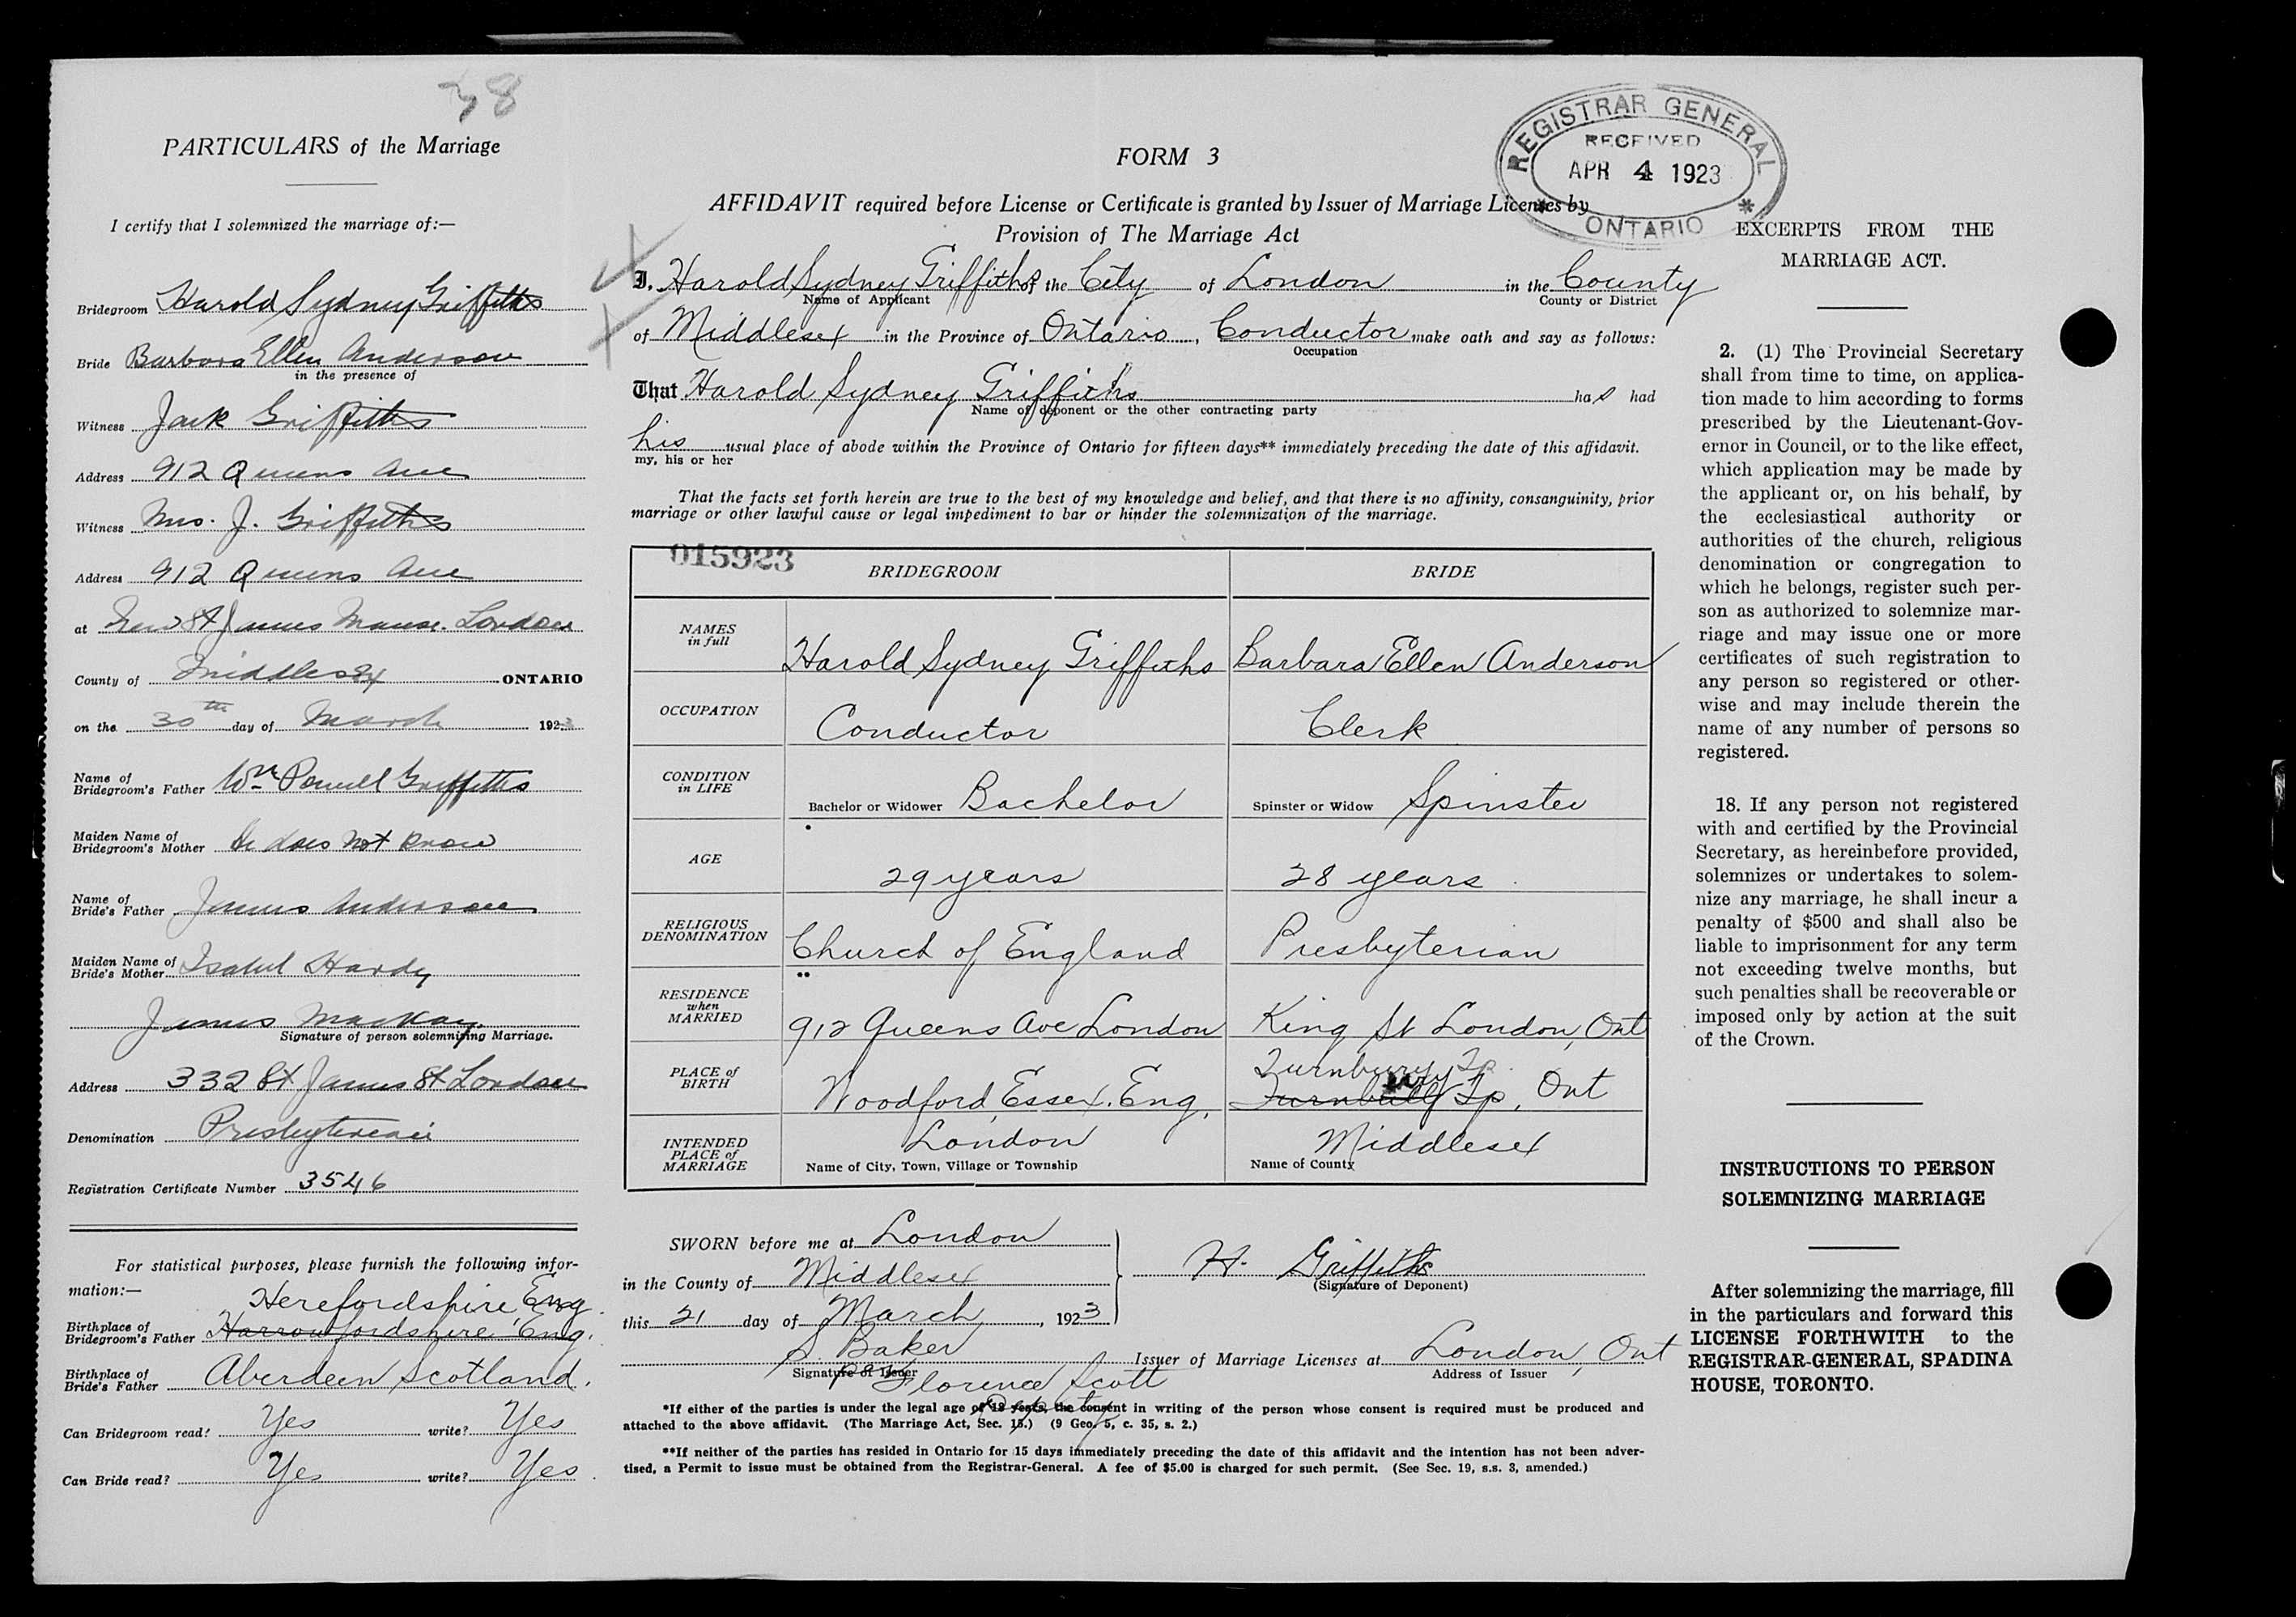 38
PARTICULARS of the Marriage
I certify that I solemnized the marriage of:—
Bridegroom Harold Sydney Griffiths
Bride Barbara Ellen Anderson
in the presence of
Witness Jack Griffiths
Address 912 Queens Ave
Witness Mrs. J. Griffiths
Address 912 Queens Ave
at New St James Manse. London
County of Middlesex ONTARIO
on the 30th day of March 1923
Name of
Bridegroom's Father Wm Powell Griffiths
Maiden Name of
Bridegroom's Mother He does not know
Name of
Bride's Father James Anderson
Maiden Name of
Bride's Mother Isabel Hardy
James MacKay.
Signature of person solemnizing Marriage.
Address 332 St James St London
Denomination Presbyterian
Registration Certificate Number 3546
For statistical purposes, please furnish the following infor-
mation:—
Herefordshire Eng.
Birthplace of
Bridegroom's Father Harrowfordshire Eng.
Birthplace of
Bride's Father Aberdeen Scotland.
Can Bridegroom read? Yes write? Yes
Can Bride read? Yes write? Yes.
FORM 3
REGISTRAR GENERAL
RECEIVED
APR 4 1923
ONTARIO
AFFIDAVIT required before License or Certificate is granted by Issuer of Marriage Licenses by
Provision of The Marriage Act
I, Harold Sydney Griffiths of the City of London in the County
Name of Applicant County or District
of Middlesex in the Province of Ontario, Conductor make oath and say as follows:
Occupation
That Harold Sydney Griffiths has had
Name of deponent or the other contracting party
his usual place of abode within the Province of Ontario for fifteen days** immediately preceding the date of this affidavit.
my, his or her
That the facts set forth herein are true to the best of my knowledge and belief, and that there is no affinity, consanguinity, prior
marriage or other lawful cause or legal impediment to bar or hinder the solemnization of the marriage.
015923
BRIDEGROOM BRIDE
NAMES
in full
Harold Sydney Griffiths Barbara Ellen Anderson
OCCUPATION
Conductor Clerk
CONDITION
in LIFE
Bachelor or Widower Bachelor Spinster or Widow Spinster
AGE
29 years 28 years
RELIGIOUS
DENOMINATION
Church of England Presbyterian
RESIDENCE
when
MARRIED
912 Queens Ave London King St London, Ont
PLACE of
BIRTH
Turnburry Tp
Woodford, Essex. Eng. Turnbully Tp, Ont
INTENDED
PLACE of
MARRIAGE
London Middlesex
Name of City, Town, Village or Township Name of County
SWORN before me at London
in the County of Middlesex
this 21 day of March, 1923
H. Griffiths
(Signature of Deponent)
S. Baker
Issuer of Marriage Licenses at London, Ont
Signature of Issuer Address of Issuer
per Florence Scott
Deputy
*If either of the parties is under the legal age of 18 years, the consent in writing of the person whose consent is required must be produced and
attached to the above affidavit. (The Marriage Act, Sec. 15.) (9 Geo. 5, c. 35, s. 2.)
**If neither of the parties has resided in Ontario for 15 days immediately preceding the date of this affidavit and the intention has not been adver-
tised, a Permit to issue must be obtained from the Registrar-General. A fee of $5.00 is charged for such permit. (See Sec. 19, s.s. 3, amended.)
EXCERPTS FROM THE
MARRIAGE ACT.
2. (1) The Provincial Secretary
shall from time to time, on applica-
tion made to him according to forms
prescribed by the Lieutenant-Gov-
ernor in Council, or to the like effect,
which application may be made by
the applicant or, on his behalf, by
the ecclesiastical authority or
authorities of the church, religious
denomination or congregation to
which he belongs, register such per-
son as authorized to solemnize mar-
riage and may issue one or more
certificates of such registration to
any person so registered or other-
wise and may include therein the
name of any number of persons so
registered.
18. If any person not registered
with and certified by the Provincial
Secretary, as hereinbefore provided,
solemnizes or undertakes to solem-
nize any marriage, he shall incur a
penalty of $500 and shall also be
liable to imprisonment for any term
not exceeding twelve months, but
such penalties shall be recoverable or
imposed only by action at the suit
of the Crown.
INSTRUCTIONS TO PERSON
SOLEMNIZING MARRIAGE
After solemnizing the marriage, fill
in the particulars and forward this
LICENSE FORTHWITH to the
REGISTRAR-GENERAL, SPADINA
HOUSE, TORONTO.